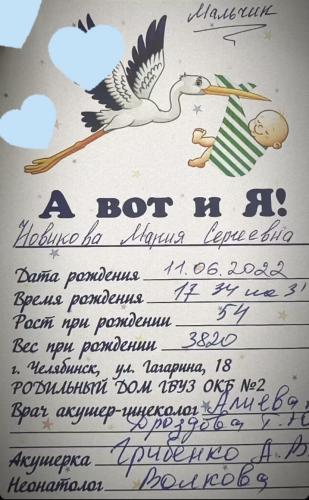 Мальчик
А вот и Я!
Новикова Мария Сергеевна
Дата рождения 11.06.2022
Время рождения 17 34 на 31
Рост при рождении 54
Вес при рождении 3820
г. Челябинск, ул. Гагарина, 18
РОДИЛЬНЫЙ ДОМ ГБУЗ ОКБ №2
Врач акушер-гинеколог Алиева
Дроздова Т.Н
Акушерка Гриценко А.В
Неонатолог Волкова